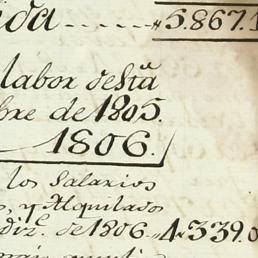 da..... 5.867.1
labor desta
bre de 1805.
1806.
los Salarios
s, y Alquilados
diz.e de 1806. 4.339.0